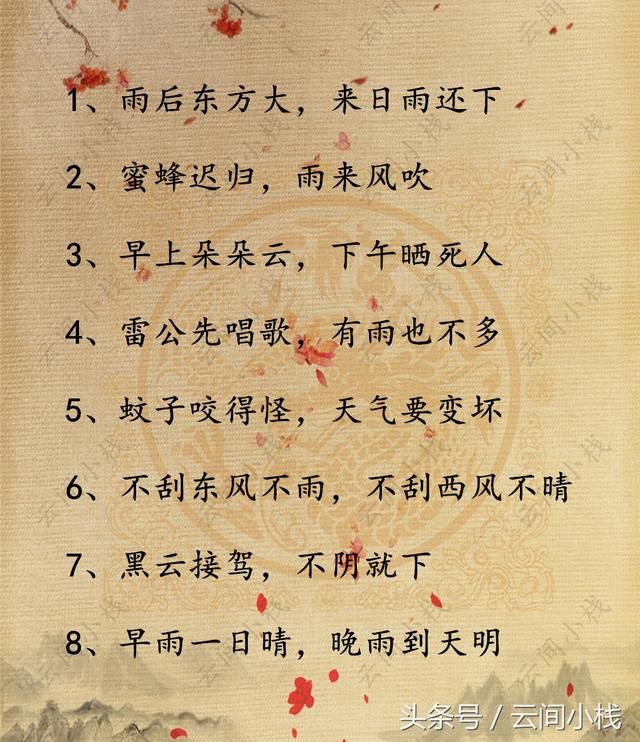 1、雨后东方大，来日雨还下
2、蜜蜂迟归，雨来风吹
3、早上朵朵云，下午晒死人
4、雷公先唱歌，有雨也不多
5、蚊子咬得怪，天气要变坏
6、不刮东风不雨，不刮西风不晴
7、黑云接驾，不阴就下
8、早雨一日晴，晚雨到天明
头条号 / 云间小栈